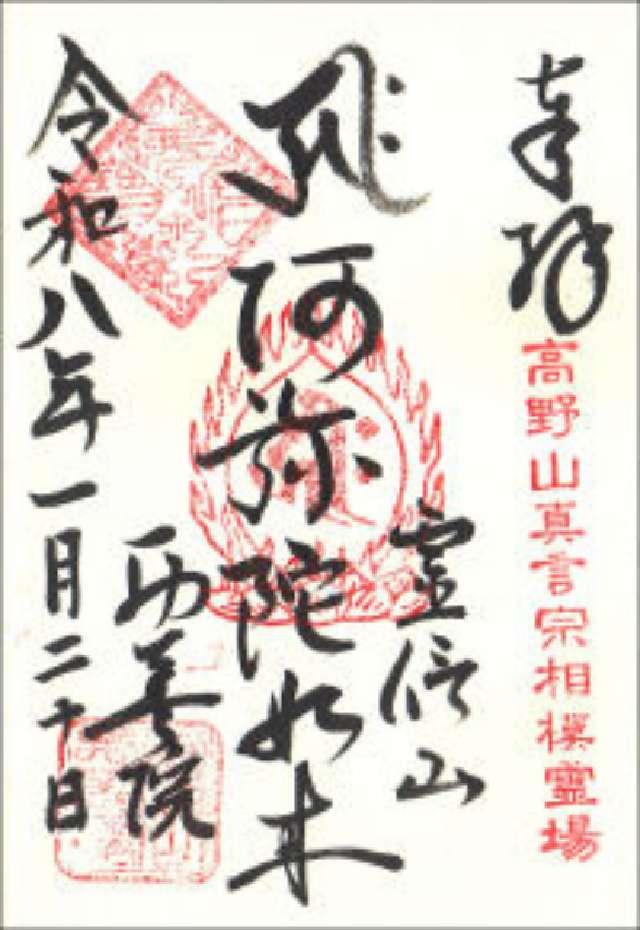 奉拝
高野山真言宗相模霊場
阿弥陀如来
院
令和八年一月二十日